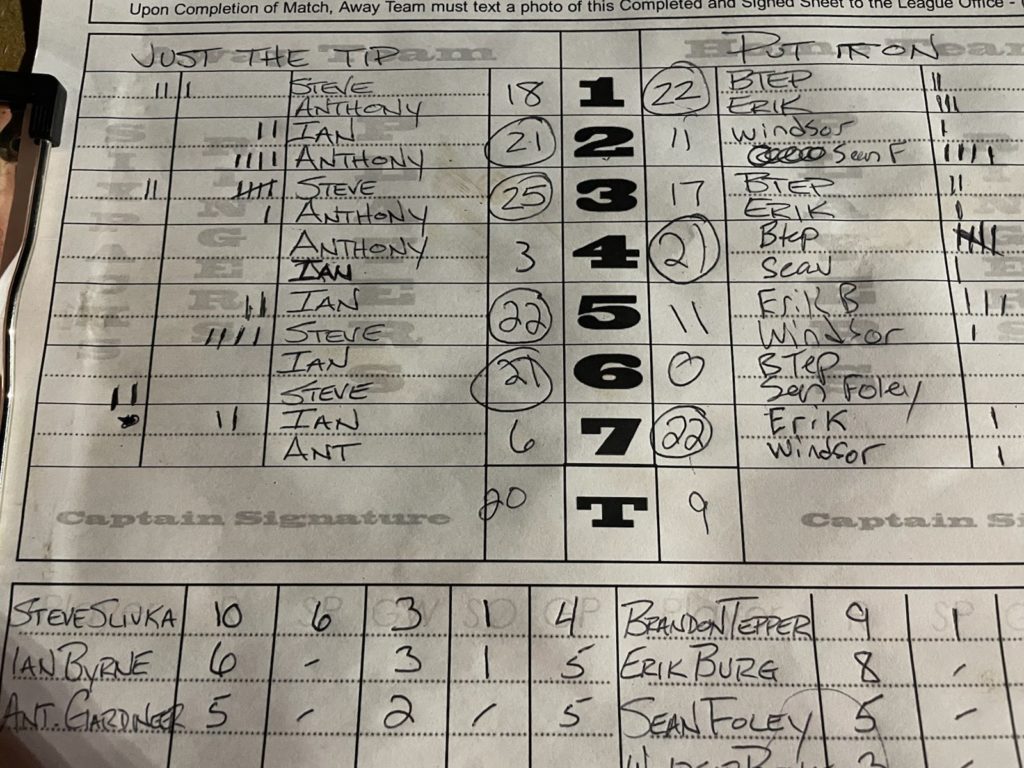 Upon Completion of Match, Away Team must text a photo of this Completed and Signed Sheet to the League Office -
JUST THE TIP PUT IT ON
STEVE 18 1 22 BTEP
ANTHONY ERIK
IAN 21 2 11 Windsor
ANTHONY Sean F
STEVE 25 3 17 BTEP
ANTHONY ERIK
ANTHONY 3 4 21 Btep
IAN Sean
IAN 22 5 11 Erik B
STEVE Windsor
IAN 21 6 0 BTep
STEVE Sean Foley
IAN 6 7 22 Erik
ANT Windsor
Captain Signature 20 T 9 Captain Si
STEVE SLIVKA 10 6 3 1 4 BRANDON TEPPER 9 1
IAN BYRNE 6 - 3 1 5 ERIK BURG 8 -
ANT. GARDINEER 5 - 2 - 5 SEAN FOLEY 5 -
3